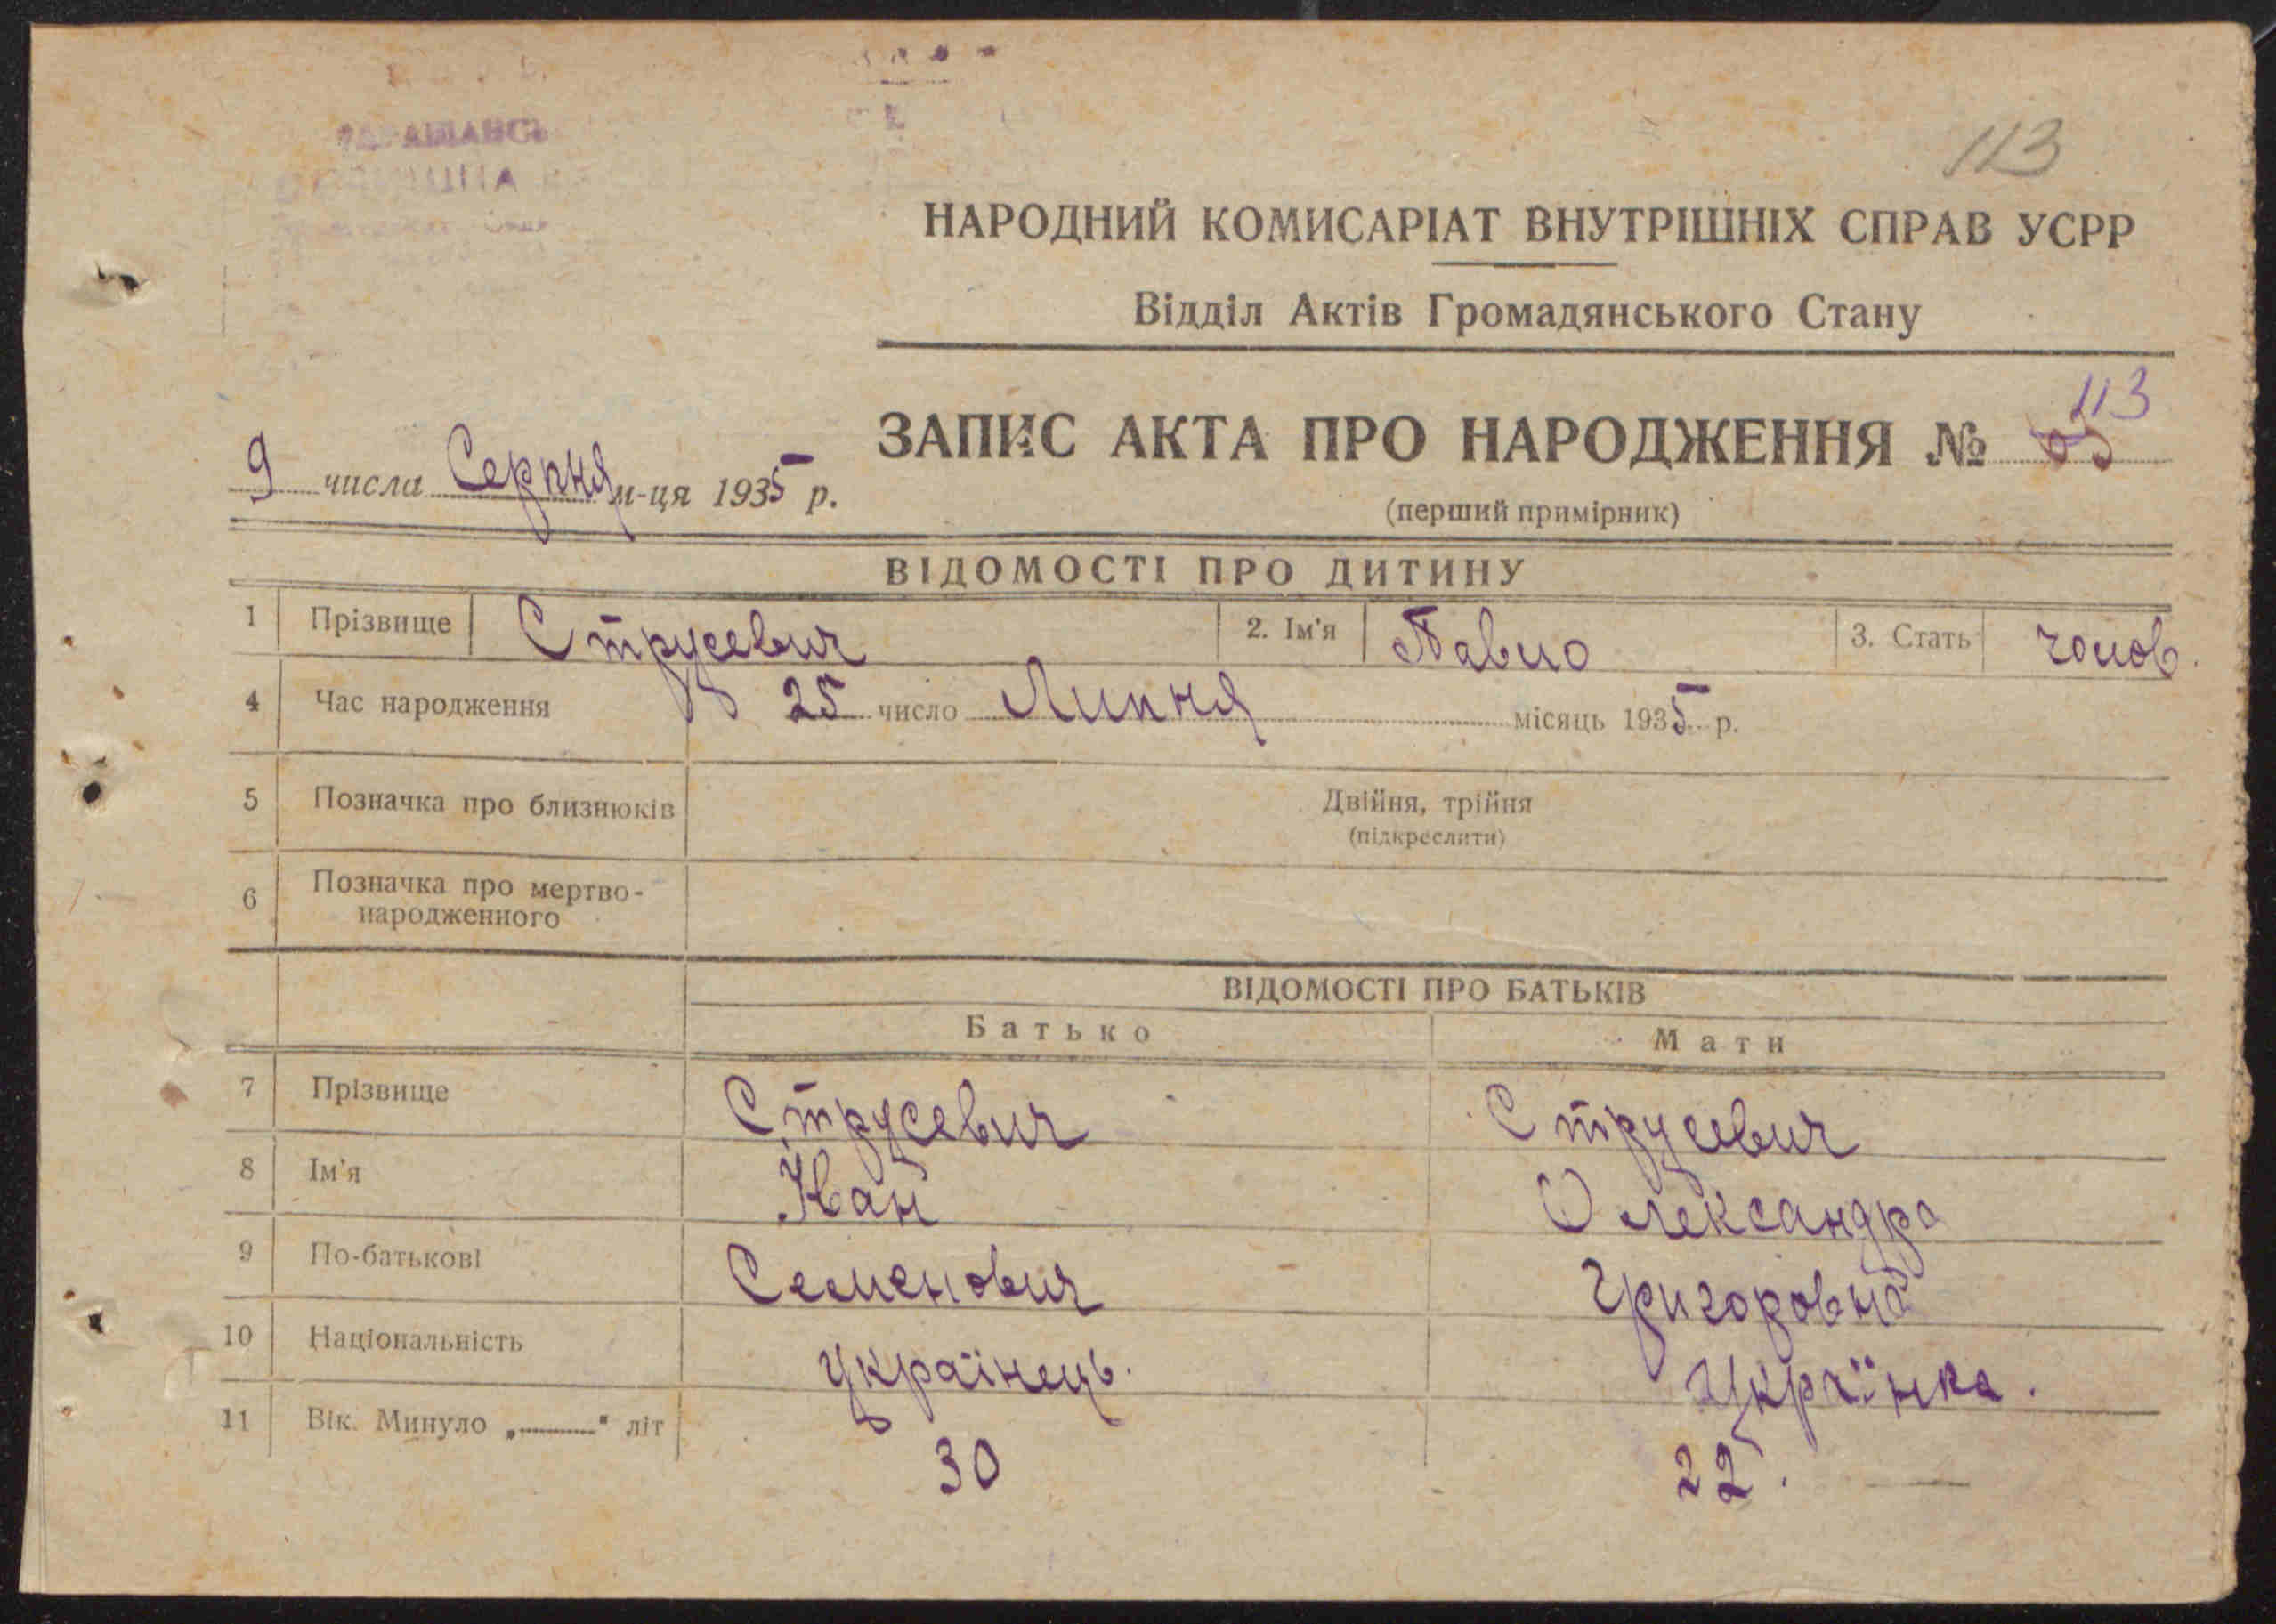 113
НАРОДНИЙ КОМИСАРІАТ ВНУТРІШНІХ СПРАВ УСРР
Відділ Актів Громадянського Стану
113
ЗАПИС АКТА ПРО НАРОДЖЕННЯ №
9 числа Серпня м-ця 1935 р.
(перший примірник)
ВІДОМОСТІ ПРО ДИТИНУ
1 Прізвище Струсевич 2. Ім'я Павло 3. Стать чолов.
4 Час народження 25 число Липня місяць 1935 р.
5 Позначка про близнюків Двійня, трійня
(підкреслити)
6 Позначка про мертво-
народженного
ВІДОМОСТІ ПРО БАТЬКІВ
Батько Мати
7 Прізвище Струсевич Струсевич
8 Ім'я Іван Олександра
9 По-батькові Семенович Григоровна
10 Національність українець. Українка.
11 Вік. Минуло „ " літ 30 22.